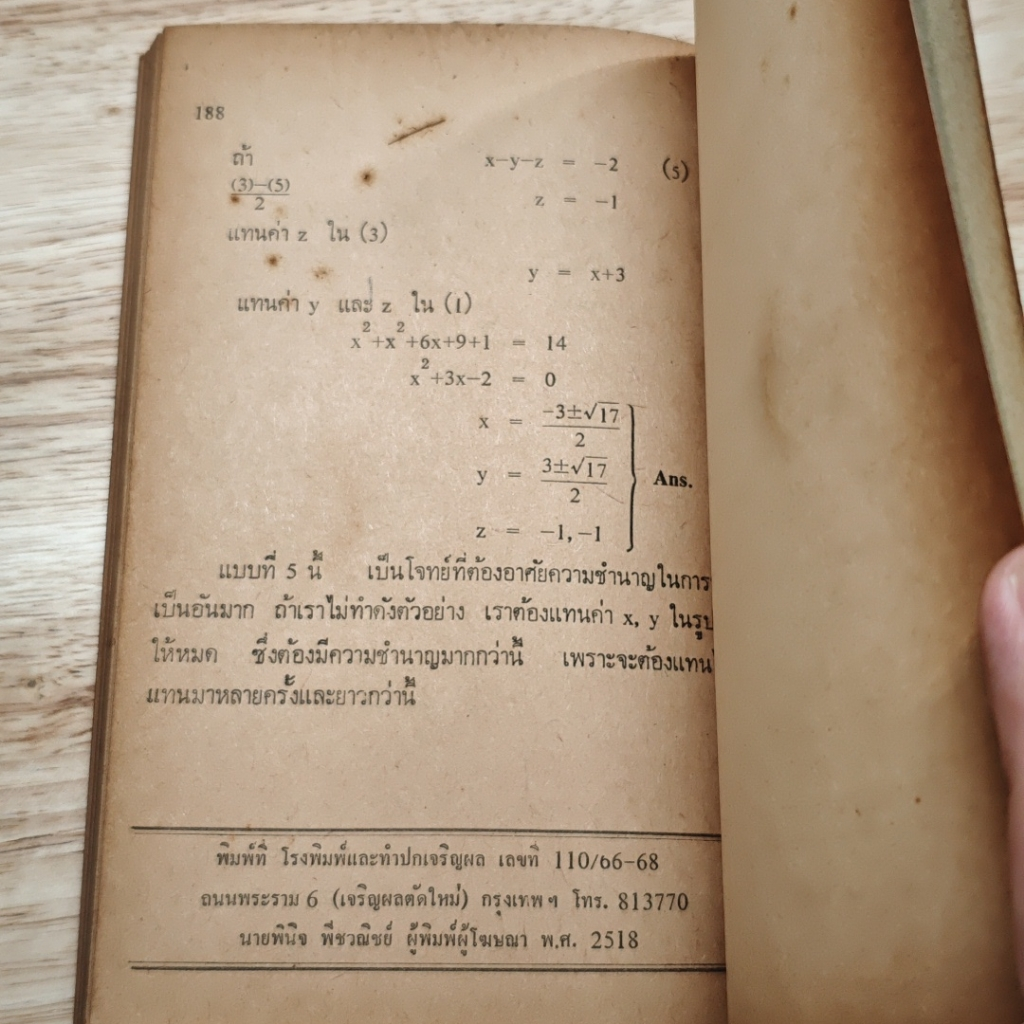 188
ถ้า x-y-z = -2 (5)
(3)-(5)
2
z = -1
แทนค่า z ใน (3)
y = x+3
แทนค่า y และ z ใน (1)
x²+x²+6x+9+1 = 14
x²+3x-2 = 0
x = -3±√17
2
y = 3±√17
2
Ans.
z = -1,-1
แบบที่ 5 นี้ เป็นโจทย์ที่ต้องอาศัยความชำนาญในการ
เป็นอันมาก ถ้าเราไม่ทำดังตัวอย่าง เราต้องแทนค่า x, y ในรูป
ให้หมด ซึ่งต้องมีความชำนาญมากกว่านี้ เพราะจะต้องแทน
แทนมาหลายครั้งและยาวกว่านี้
พิมพ์ที่ โรงพิมพ์และทำปกเจริญผล เลขที่ 110/66-68
ถนนพระราม 6 (เจริญผลตัดใหม่) กรุงเทพฯ โทร. 813770
นายพินิจ พืชวณิชย์ ผู้พิมพ์ผู้โฆษณา พ.ศ. 2518